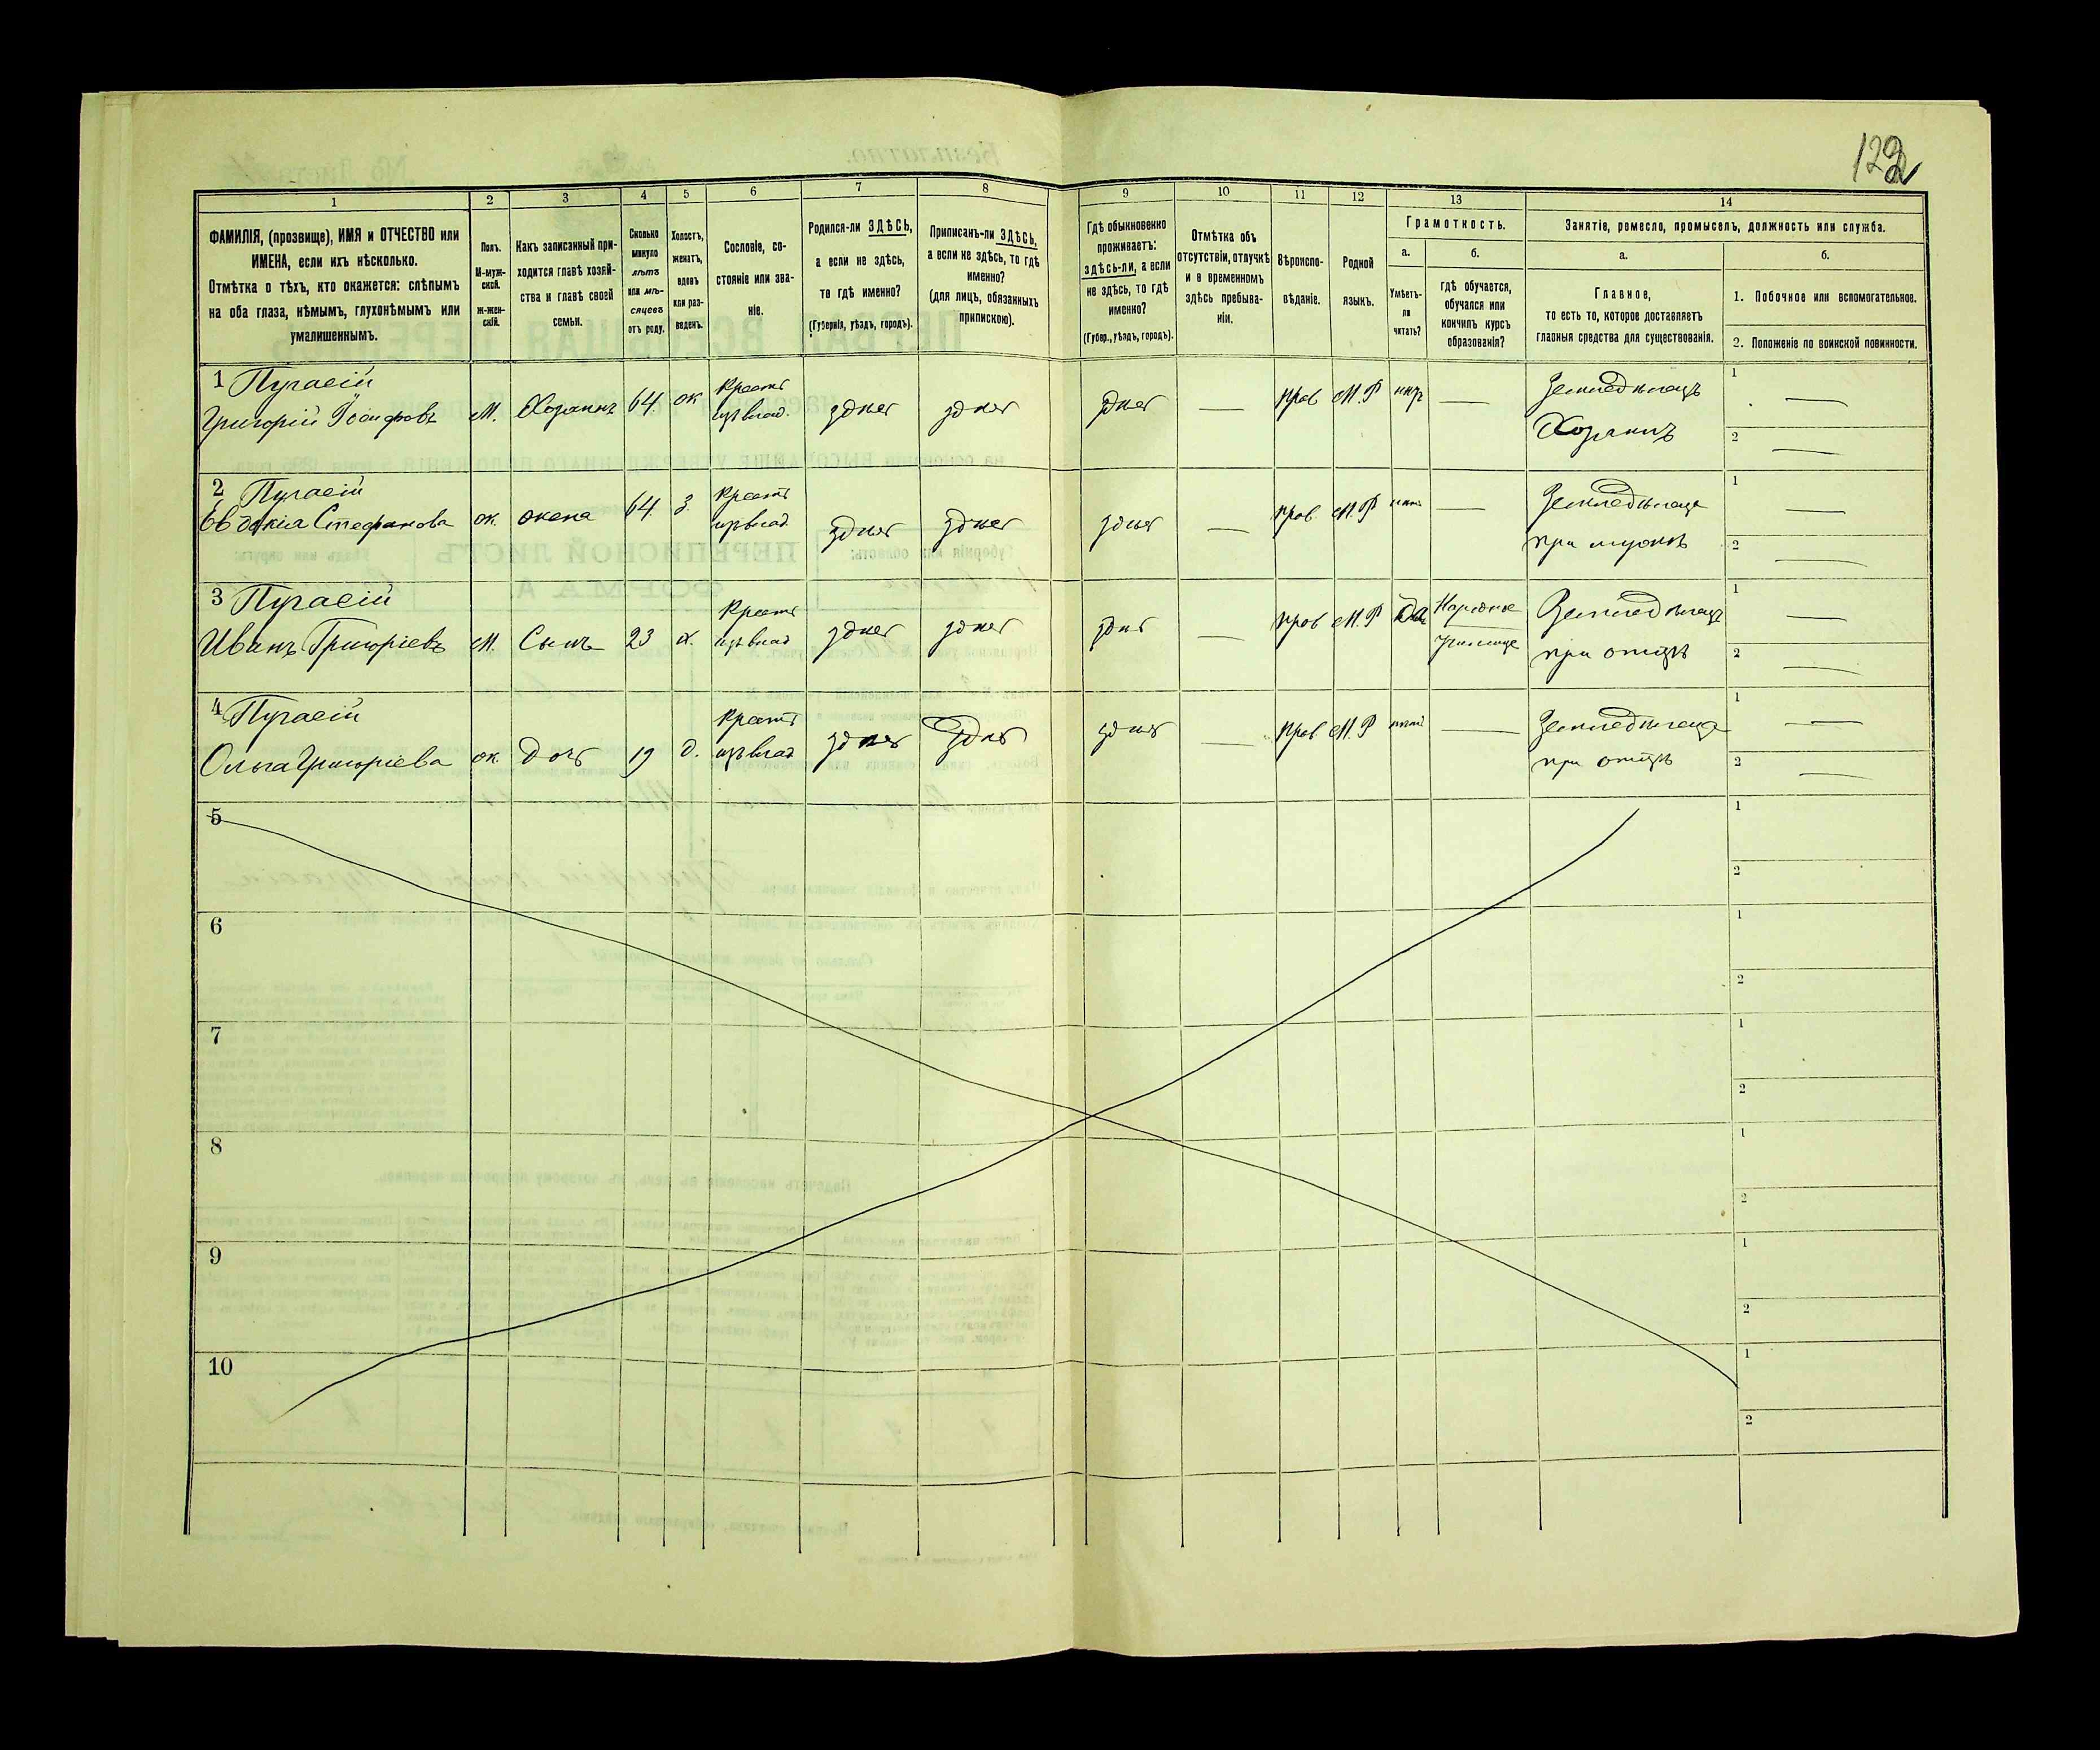 122
1
2
3
4
5
6
7
8
9
10
11
12
13
14
ФАМИЛІЯ, (прозвище), ИМЯ и ОТЧЕСТВО или
ИМЕНА, если ихъ нѣсколько.
Отмѣтка о тѣхъ, кто окажется: слѣпымъ
на оба глаза, нѣмымъ, глухонѣмымъ или
умалишеннымъ.
Полъ.
М-муж-
ской.
Ж-жен-
скій.
Какъ записанный при-
ходится главѣ хозяй-
ства и главѣ своей
семьи.
Сколько
минуло
лѣтъ
или мѣ-
сяцевъ
отъ роду.
Холостъ,
женатъ,
вдовъ
или раз-
веденъ.
Сословіе, со-
стояніе или зва-
ніе.
Родился-ли ЗДѢСЬ,
а если не здѣсь,
то гдѣ именно?
(Губернія, уѣздъ, городъ).
Приписанъ-ли ЗДѢСЬ,
а если не здѣсь, то гдѣ
именно?
(для лицъ, обязанныхъ
припискою).
Гдѣ обыкновенно
проживаетъ:
здѣсь-ли, а если
не здѣсь, то гдѣ
именно?
(Губер., уѣздъ, городъ).
Отмѣтка объ
отсутствіи, отлучкѣ
и о временномъ
здѣсь пребыва-
ніи.
Вѣроиспо-
вѣданіе.
Родной
языкъ.
Грамотность.
а.
Умѣетъ-
ли
читать?
б.
гдѣ обучается,
обучался или
кончилъ курсъ
образованія?
Занятіе, ремесло, промыселъ, должность или служба.
а.
Главное,
то есть то, которое доставляетъ
главныя средства для существованія.
б.
1. Побочное или вспомогательное.
2. Положеніе по воинской повинности.
1 Пугасій
Григорій Іосифовъ
М. Хозяинъ 64 ж Крест. из влад. здѣсь здѣсь здѣсь — прав М.Р нѣтъ —
Земледѣлецъ
Хозяинъ
1 —
2 —
2 Пугасій
Евдокія Стефанова
ж. жена 64 з. Крест. из влад. здѣсь здѣсь здѣсь — прав. М.Р нѣтъ —
Земледѣлеца
при мужѣ
1 —
2 —
3 Пугасій
Иванъ Григоріевъ
М. Сынъ 23 х. Крест. из влад здѣсь здѣсь здѣсь — прав М.Р Да Народное
училище
Земледѣлецъ
при отцѣ
1 —
2 —
4 Пугасій
Ольга Григоріева
ж. дочь 19 д. Крест. из влад здѣсь здѣсь здѣсь — прав М.Р нѣтъ —
Земледѣлеца
при отцѣ
1 —
2 —
5
1
2
6
1
2
7
1
2
8
1
2
9
1
2
10
1
2